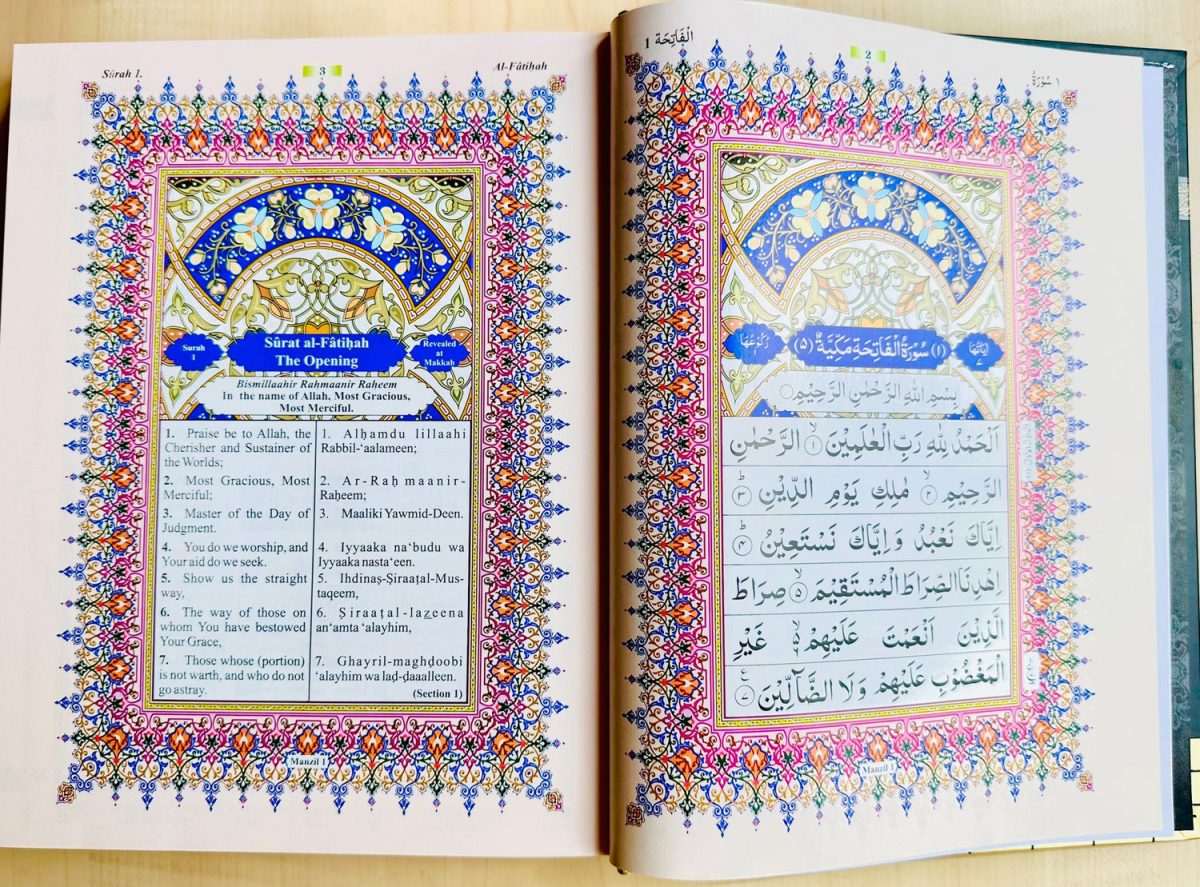 Sûrah 1.
3
Al-Fâtiḥah
Surah
1
Sûrat al-Fâtiḥah
The Opening
Revealed
at
Makkah
Bismillaahir Rahmaanir Raheem
In the name of Allah, Most Gracious,
Most Merciful.
1. Praise be to Allah, the
Cherisher and Sustainer of
the Worlds;
2. Most Gracious, Most
Merciful;
3. Master of the Day of
Judgment.
4. You do we worship, and
Your aid do we seek.
5. Show us the straight
way,
6. The way of those on
whom You have bestowed
Your Grace,
7. Those whose (portion)
is not warth, and who do not
go astray.
1. Alḥamdu lillaahi
Rabbil-‘aalameen;
2. Ar-Raḥmaanir-
Raḥeem;
3. Maaliki Yawmid-Deen.
4. Iyyaaka na‘budu wa
Iyyaaka nasta‘een.
5. Ihdinaṣ-Ṣiraaṭal-Mus-
taqeem,
6. Ṣiraaṭal-lazeena
an‘amta ‘alayhim,
7. Ghayril-maghḍoobi
‘alayhim wa laḍ-ḍaaalleen.
(Section 1)
Manzil 1
الْفَاتِحَة 1
2
سُورَةُ ١
رُكُوْعُهَا
(١) سُوْرَةُ الْفَاتِحَةِ مَكِّيَّةٌ (٥)
اٰيَاتُهَا
بِسْمِ اللّٰهِ الرَّحْمٰنِ الرَّحِيْمِ
اَلْحَمْدُ لِلّٰهِ رَبِّ الْعٰلَمِيْنَ ۙ﴿١﴾ الرَّحْمٰنِ
الرَّحِيْمِ ۙ﴿٢﴾ مٰلِكِ يَوْمِ الدِّيْنِ ؕ﴿٣﴾
اِيَّاكَ نَعْبُدُ وَاِيَّاكَ نَسْتَعِيْنُ ؕ﴿٤﴾
اِهْدِنَا الصِّرَاطَ الْمُسْتَقِيْمَ ۙ﴿٥﴾ صِرَاطَ
الَّذِيْنَ اَنْعَمْتَ عَلَيْهِمْ ۙ۬ غَيْرِ
الْمَغْضُوْبِ عَلَيْهِمْ وَلَا الضَّآلِّيْنَ ﴿٧﴾
Manzil 1